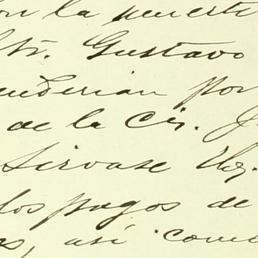 con la muerte
Sr. Gustavo
enderían por
de la Cía. J
Sírvase Ud.
los pagos de
as, así como